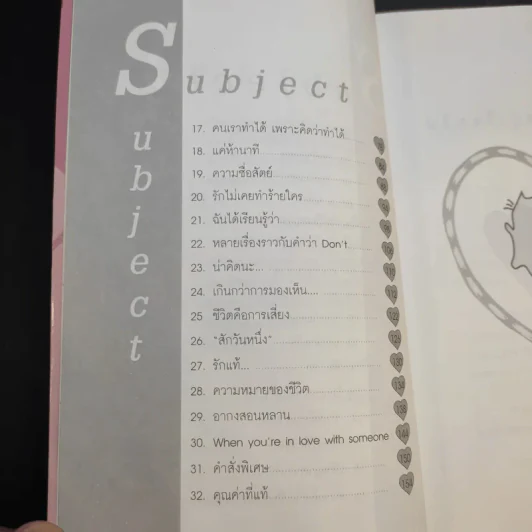 Subject
Subject
17. คนเราทำได้ เพราะคิดว่าทำได้
18. แค่ห้านาที
19. ความซื่อสัตย์
20. รักไม่เคยทำร้ายใคร
21. ฉันได้เรียนรู้ว่า
22. หลายเรื่องราวกับคำว่า Don't
23. น่าคิดนะ...
24. เกินกว่าการมองเห็น....
25 ชีวิตคือการเสี่ยง
26. "สักวันหนึ่ง" 126
27. รักแท้... 130
28. ความหมายของชีวิต 134
29. อากงสอนหลาน 138
30. When you're in love with someone 144
31. คำสั่งพิเศษ 150
32. คุณค่าที่แท้ 154